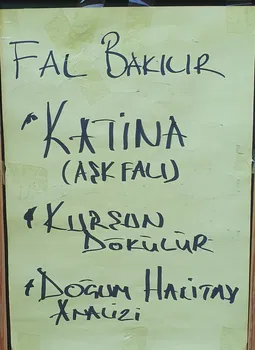 FAL BAKILIR
KATİNA
(AŞK FALI)
KURŞUN
DÖKÜLÜR
DOĞUM HARİTAY
ANALİZİ